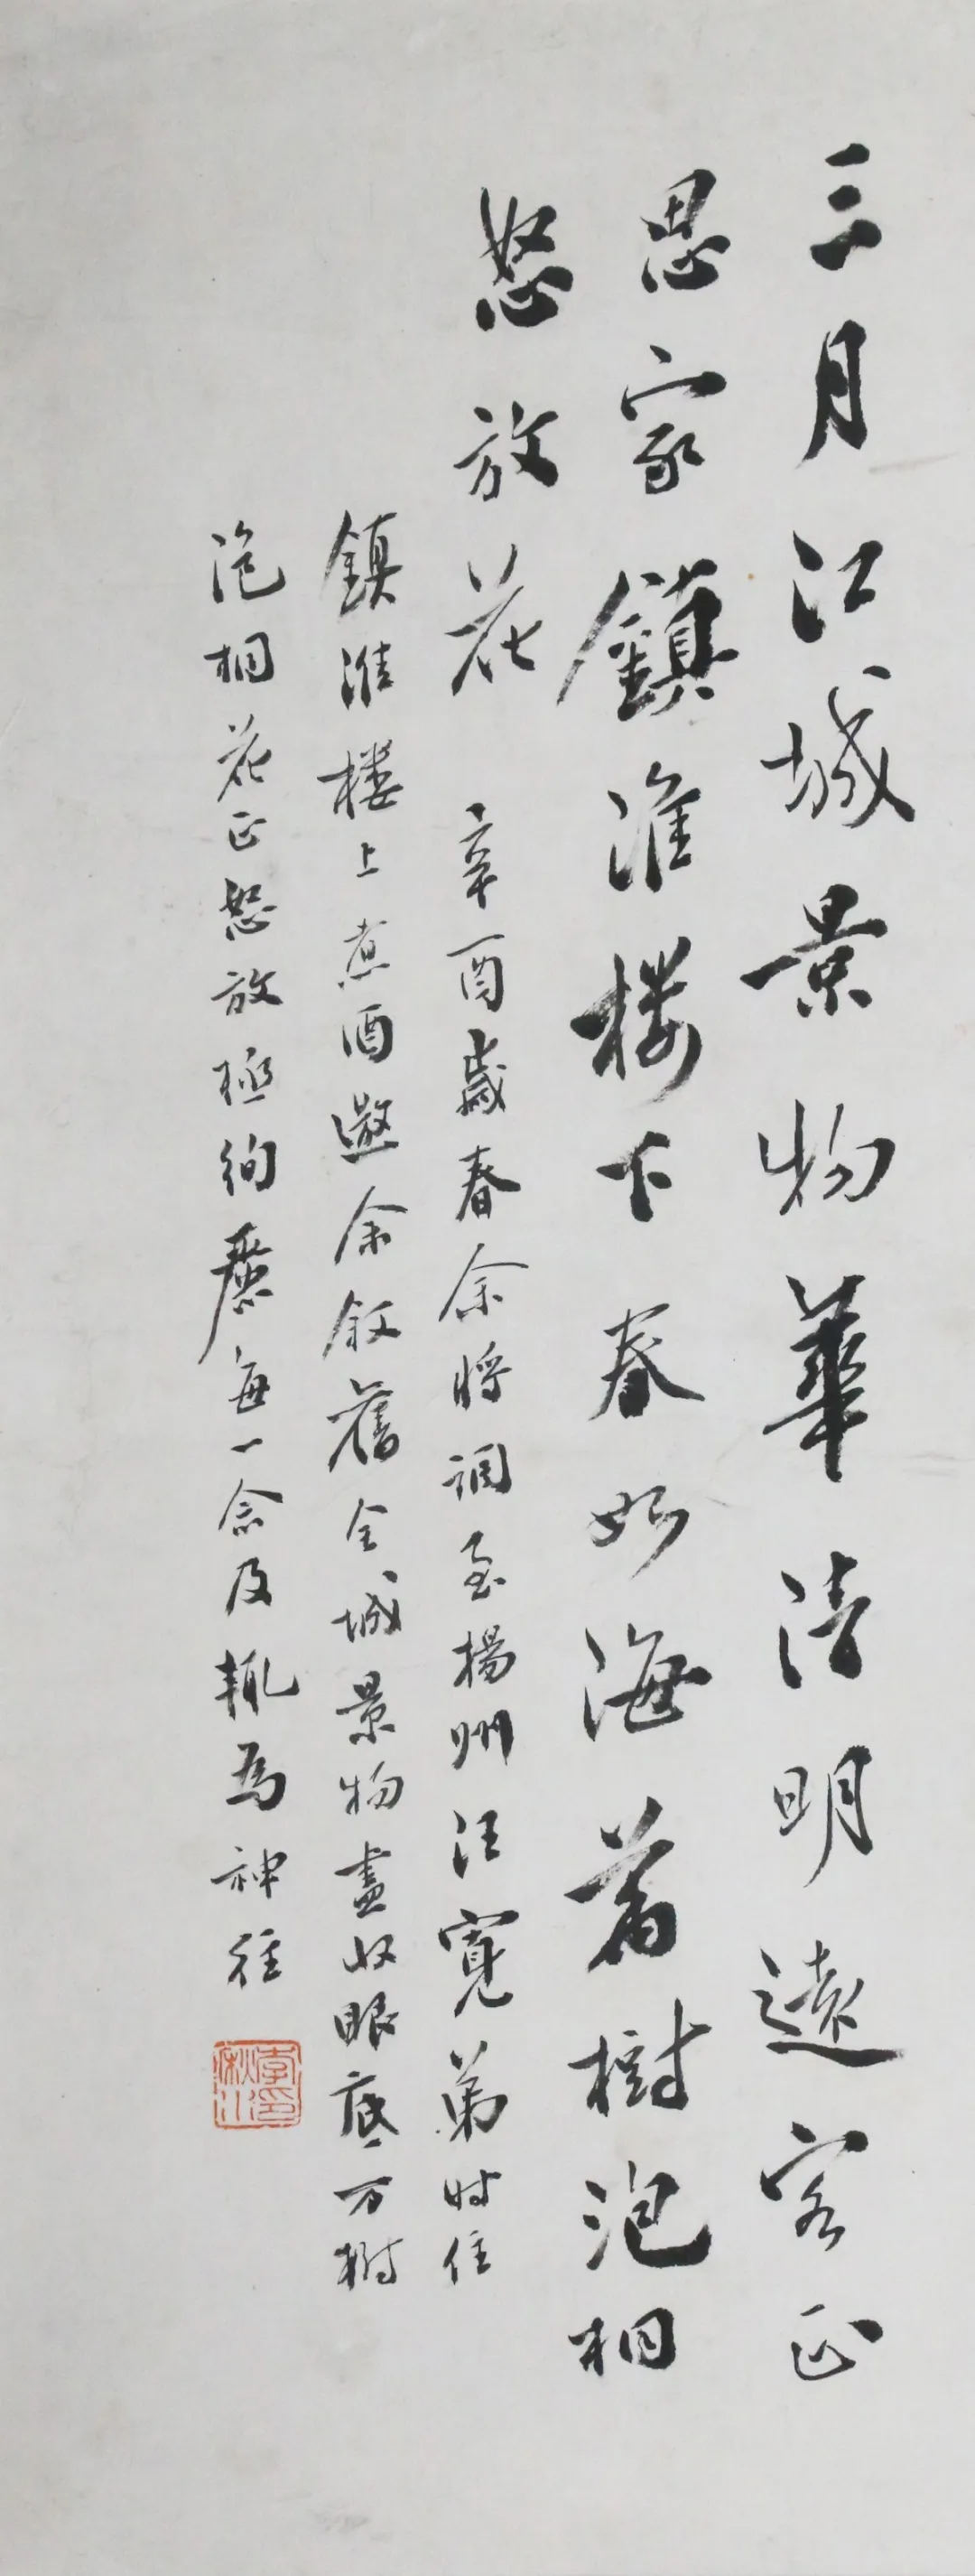 三月江城景物華清明遠客正
思家鎮淮楼下春如海萬樹泡桐
怒放花
辛酉歲春余将調至揚州汪寬弟時住
鎮淮楼上煮酒邀余叙舊全城景物盡收眼底万樹
泡桐花正怒放極絢麗每一念及輒為神往
李秋川印